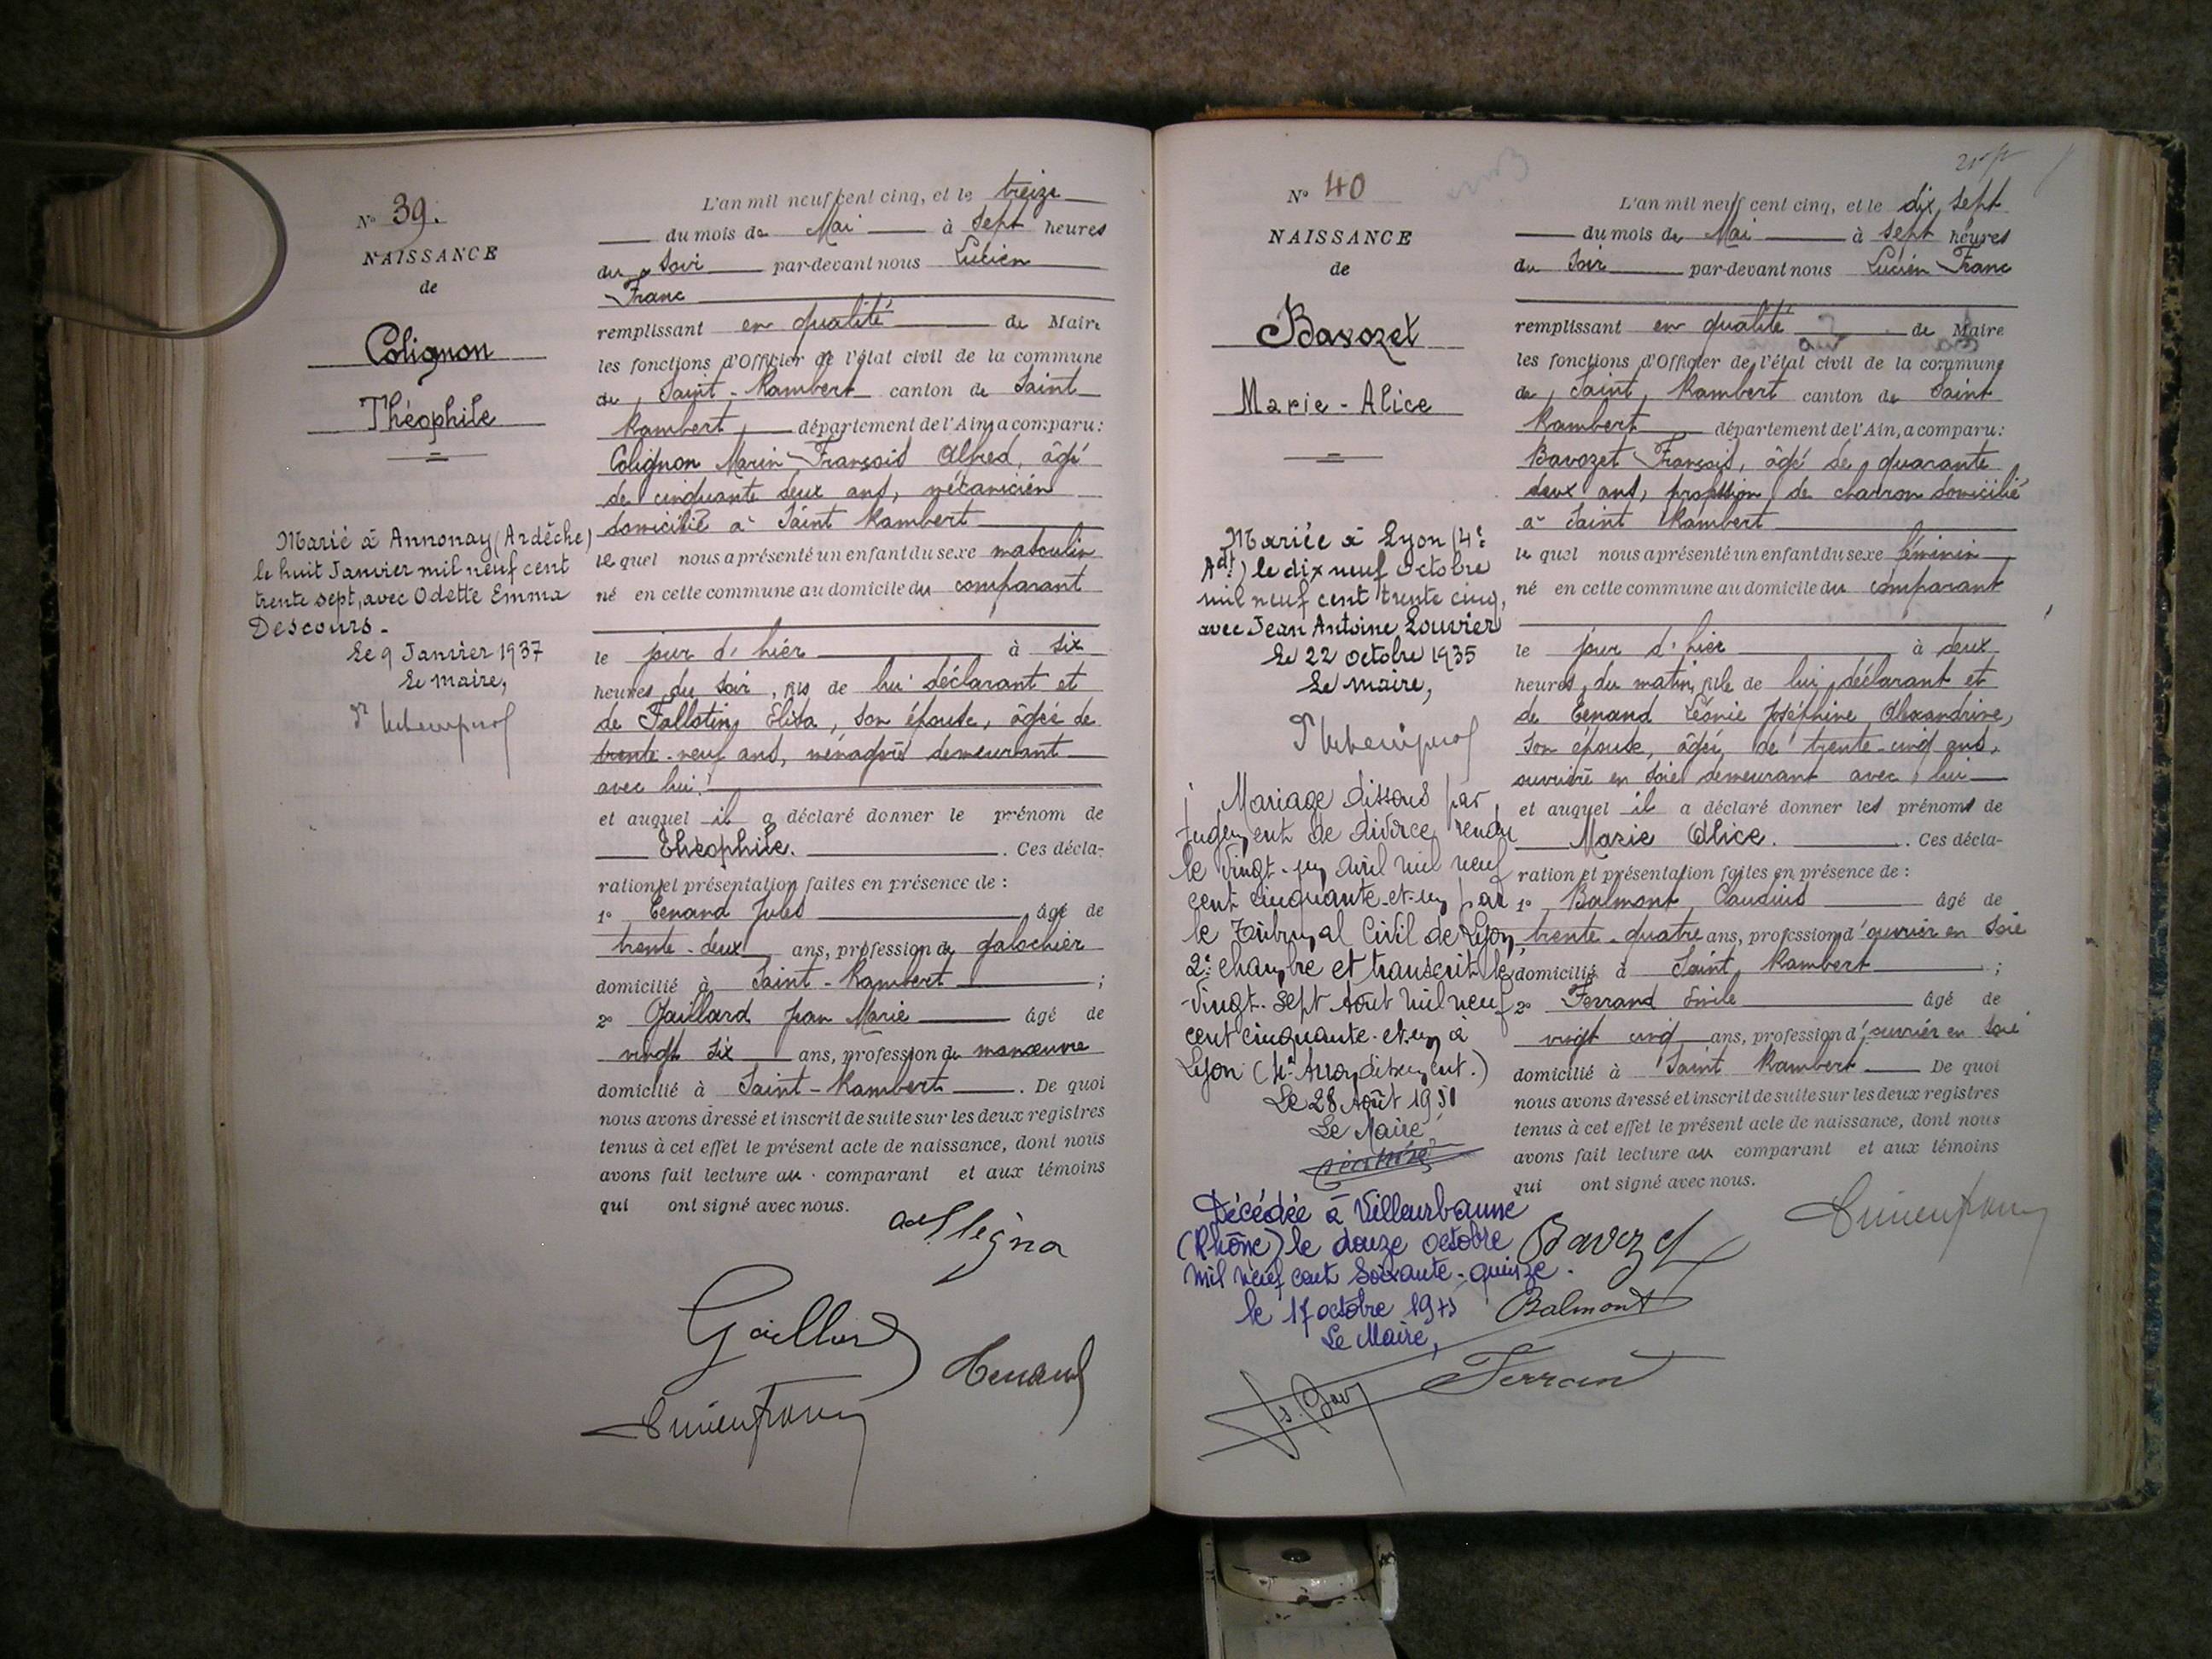 N° 39.
NAISSANCE
de
Colignon
Théophile
Marié à Annonay (Ardèche)
le huit Janvier mil neuf cent
trente sept, avec Odette Emma
Descours.
Le 9 Janvier 1937
Le maire,
L'an mil neuf cent cinq, et le treize
du mois de Mai à sept heures
du soir par-devant nous Lucien
Franc
remplissant en qualité de Maire
les fonctions d'Officier de l'état civil de la commune
de Saint-Rambert canton de Saint
Rambert département de l'Ain, a comparu :
Colignon Marin François Alfred, âgé
de cinquante deux ans, mécanicien
domicilié à Saint Rambert
le quel nous a présenté un enfant du sexe masculin
né en cette commune au domicile du comparant
le jour d'hier à six
heures du soir, fils de lui déclarant et
de Fallotin, Elisa, son épouse, âgée de
trente-neuf ans, ménagère demeurant
avec lui.
et auquel il a déclaré donner le prénom de
Théophile. Ces décla-
ration et présentation faites en présence de :
1° Tenand Jules âgé de
trente-deux ans, profession de galochier
domicilié à Saint-Rambert ;
2° Gaillard Jean Marie âgé de
vingt six ans, profession de manœuvre
domicilié à Saint-Rambert. De quoi
nous avons dressé et inscrit de suite sur les deux registres
tenus à cet effet le présent acte de naissance, dont nous
avons fait lecture au comparant et aux témoins
qui ont signé avec nous.
Gaillard
Tenand
Lucien Franc
N° 40
NAISSANCE
de
Bavozet
Marie-Alice
Mariée à Lyon (4e
Adt) le dix neuf Octobre
mil neuf cent trente cinq,
avec Jean Antoine Louvier
Le 22 octobre 1935
Le maire,
Mariage dissous par
Jugement de divorce rendu
le vingt-un avril mil neuf
cent cinquante-et-un par
le Tribunal Civil de Lyon,
2e chambre et transcrit le
vingt-sept Août mil neuf
cent cinquante-et-un à
Lyon (4e Arrondissement.)
Le 28 Août 1951
Le Maire
Décédée à Villeurbanne
(Rhône) le douze octobre
mil neuf cent soixante-quinze.
le 17 octobre 1975
Le Maire,
L'an mil neuf cent cinq, et le dix sept
du mois de Mai à sept heures
du soir par-devant nous Lucien Franc
remplissant en qualité de Maire
les fonctions d'Officier de l'état civil de la commune
de Saint Rambert canton de Saint
Rambert département de l'Ain, a comparu :
Bavozet François, âgé de quarante
deux ans, profession de charron domicilié
à Saint Rambert
le quel nous a présenté un enfant du sexe féminin
né en cette commune au domicile du comparant
le jour d'hier à deux
heures du matin, fille de lui déclarant et
de Tenand Léonie Joséphine Alexandrine,
son épouse, âgée de trente-cinq ans,
ouvrière en soie demeurant avec lui
et auquel il a déclaré donner les prénoms de
Marie Alice. Ces décla-
ration et présentation faites en présence de :
1° Balmont Claudius âgé de
trente-quatre ans, profession d'ouvrier en soie
domicilié à Saint Rambert ;
2° Ferrand Emile âgé de
vingt cinq ans, profession d'ouvrier en soie
domicilié à Saint Rambert De quoi
nous avons dressé et inscrit de suite sur les deux registres
tenus à cet effet le présent acte de naissance, dont nous
avons fait lecture au comparant et aux témoins
qui ont signé avec nous.
Lucien Franc
Bavozet
Balmont
Ferrand